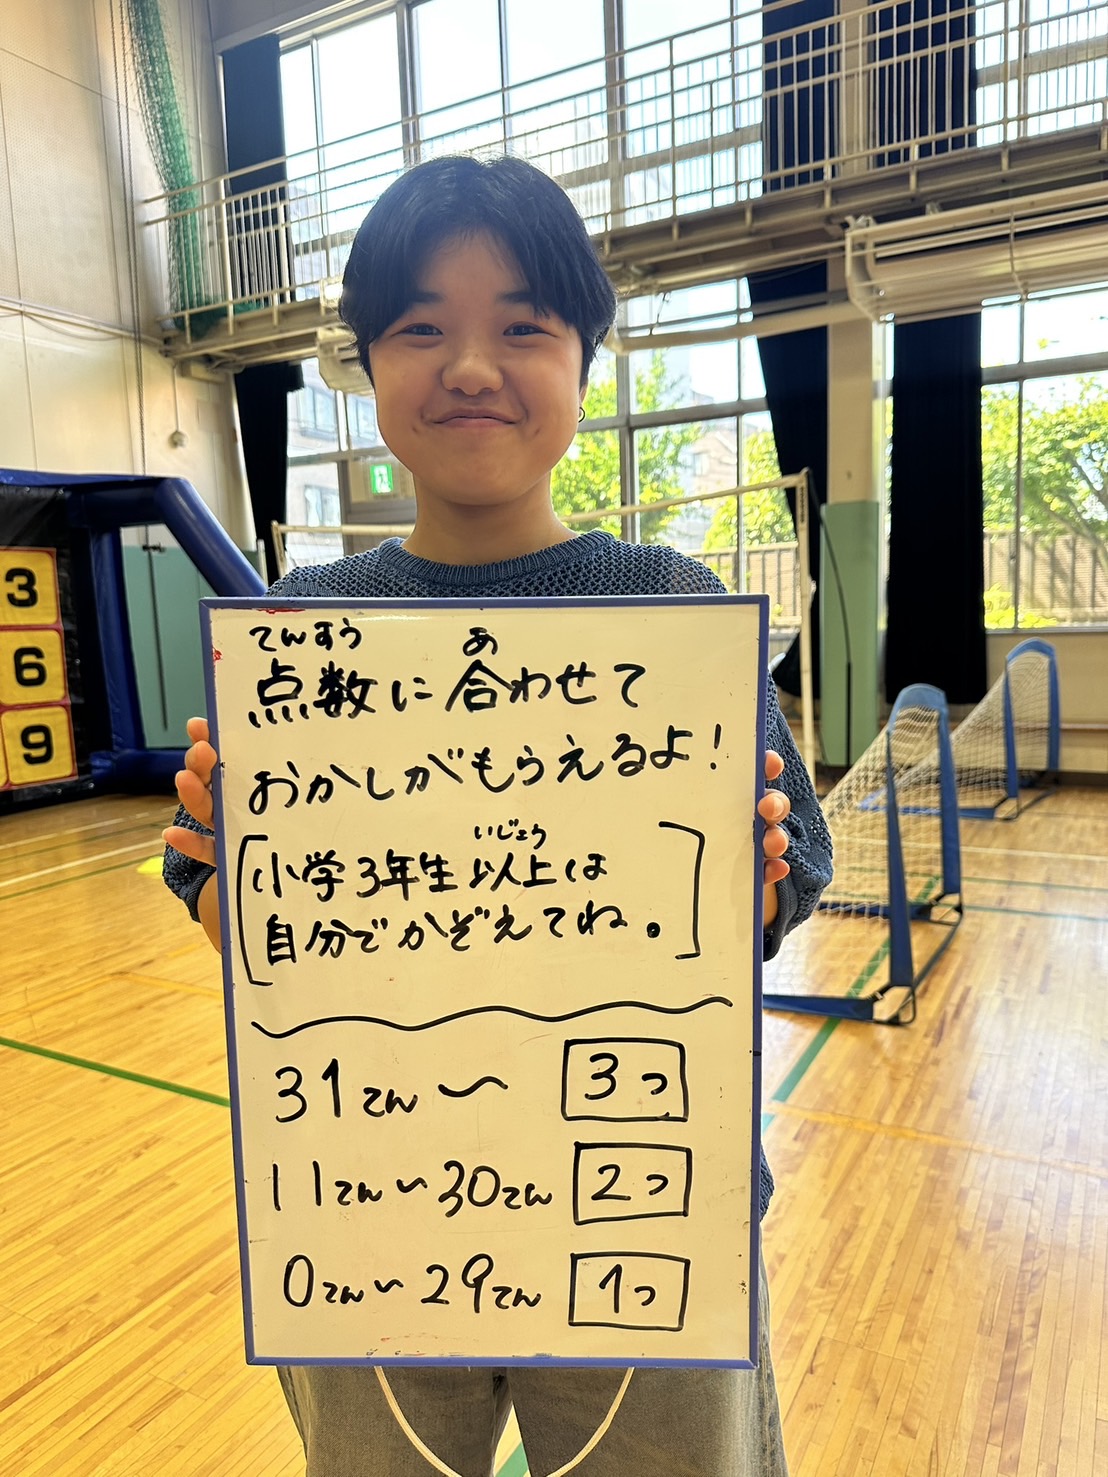 てんすう あ
点数に合わせて
おかしがもらえるよ!
いじょう
小学3年生以上は
自分でかぞえてね。
31てん〜 3つ
11てん〜30てん 2つ
0てん〜29てん 1つ
3
6
9